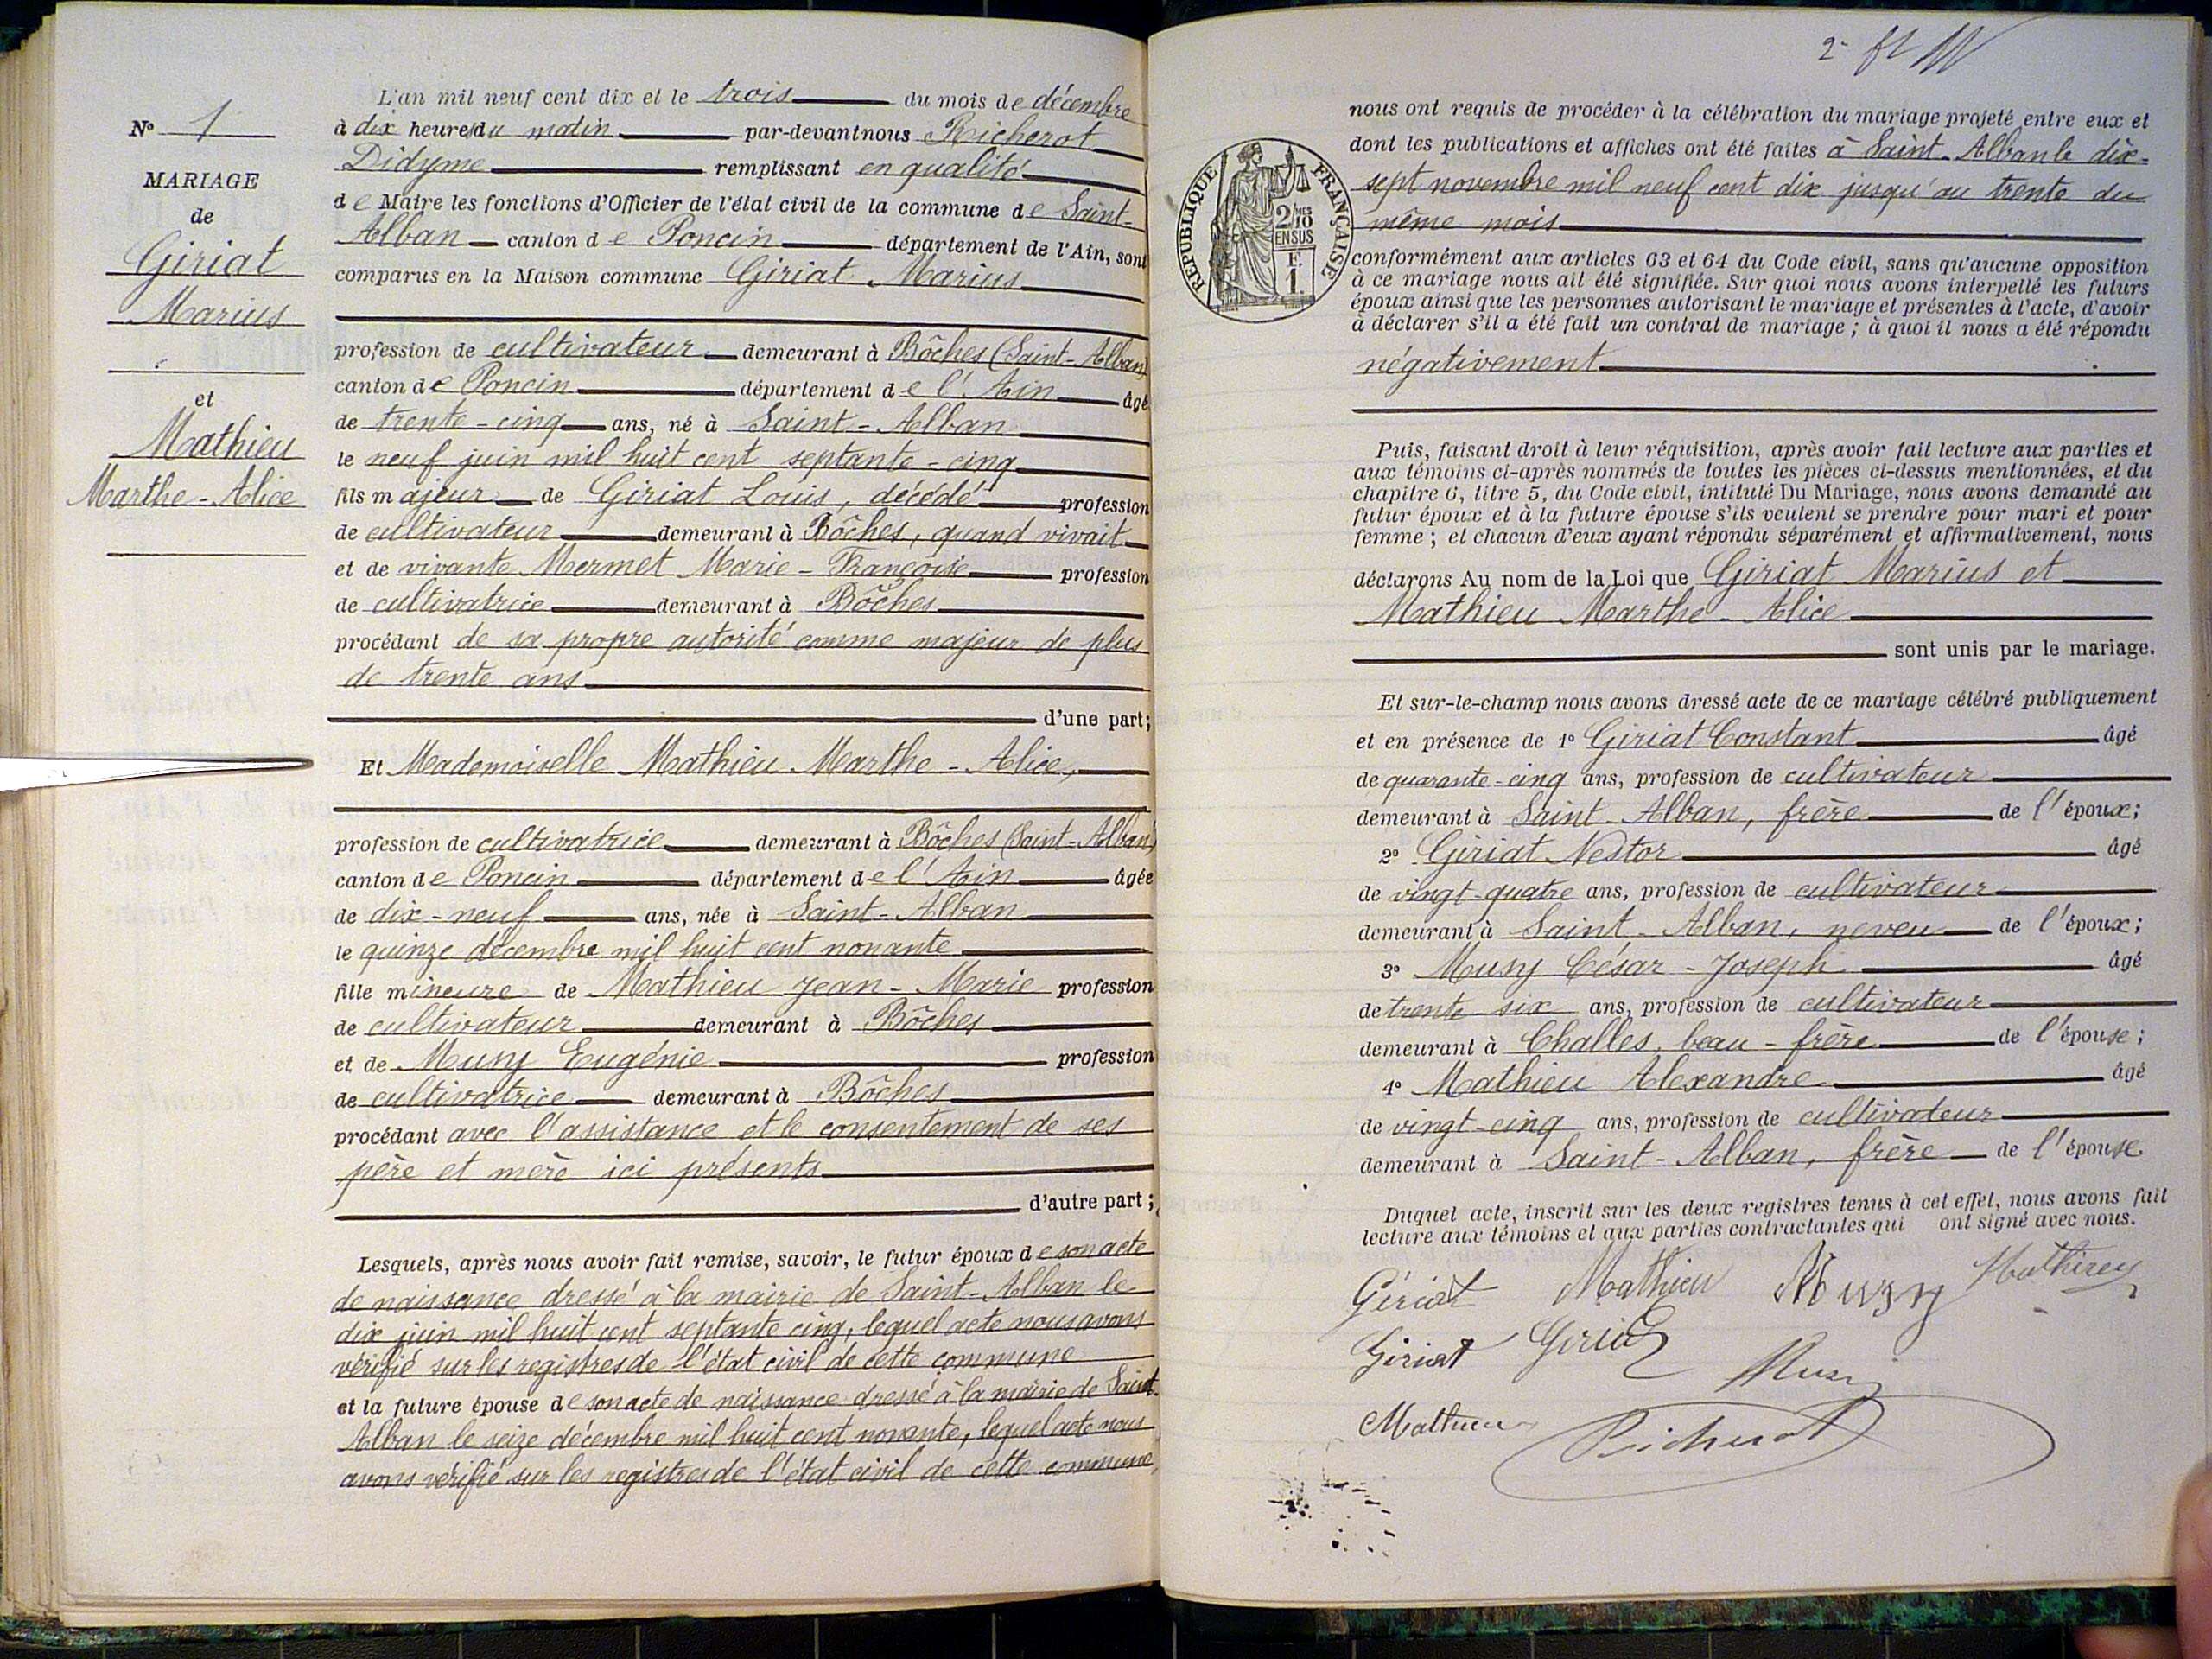 N° 1
MARIAGE
de
Giriat
Marius
et
Mathieu
Marthe-Alice
L'an mil neuf cent dix et le trois du mois de décembre
à dix heures du matin par-devant nous Richerot
Didyme remplissant en qualité
de Maire les fonctions d'Officier de l'état civil de la commune de Saint-
Alban canton de Poncin département de l'Ain, sont
comparus en la Maison commune Giriat Marius
profession de cultivateur demeurant à Bôches (Saint-Alban)
canton de Poncin département de l'Ain âgé
de trente-cinq ans, né à Saint-Alban
le neuf juin mil huit cent septante-cinq
fils majeur de Giriat Louis, décédé profession
de cultivateur demeurant à Bôches, quand vivait
et de vivante Mermet Marie-Françoise profession
de cultivatrice demeurant à Bôches
procédant de sa propre autorité comme majeur de plus
de trente ans
d'une part;
Et Mademoiselle Mathieu Marthe-Alice,
profession de cultivatrice demeurant à Bôches (Saint-Alban)
canton de Poncin département de l'Ain âgée
de dix-neuf ans, née à Saint-Alban
le quinze décembre mil huit cent nonante
fille mineure de Mathieu Jean-Marie profession
de cultivateur demeurant à Bôches
et de Musy Eugénie profession
de cultivatrice demeurant à Bôches
procédant avec l'assistance et le consentement de ses
père et mère ici présents
d'autre part;
Lesquels, après nous avoir fait remise, savoir, le futur époux de son acte
de naissance dressé à la mairie de Saint-Alban le
dix juin mil huit cent septante cinq, lequel acte nous avons
vérifié sur les registres de l'état civil de cette commune
et la future épouse de son acte de naissance dressé à la mairie de Saint-
Alban le seize décembre mil huit cent nonante, lequel acte nous
avons vérifié sur les registres de l'état civil de cette commune,
nous ont requis de procéder à la célébration du mariage projeté entre eux et
dont les publications et affiches ont été faites à Saint-Alban le dix-
sept novembre mil neuf cent dix jusqu'au trente du
même mois
RÉPUBLIQUE FRANÇAISE
2/10 MES
EN SUS
F.
1.
conformément aux articles 63 et 64 du Code civil, sans qu'aucune opposition
à ce mariage nous ait été signifiée. Sur quoi nous avons interpellé les futurs
époux ainsi que les personnes autorisant le mariage et présentes à l'acte, d'avoir
à déclarer s'il a été fait un contrat de mariage; à quoi il nous a été répondu
négativement
Puis, faisant droit à leur réquisition, après avoir fait lecture aux parties et
aux témoins ci-après nommés de toutes les pièces ci-dessus mentionnées, et du
chapitre 6, titre 5, du Code civil, intitulé Du Mariage, nous avons demandé au
futur époux et à la future épouse s'ils veulent se prendre pour mari et pour
femme; et chacun d'eux ayant répondu séparément et affirmativement, nous
déclarons Au nom de la Loi que Giriat Marius et
Mathieu Marthe-Alice
sont unis par le mariage.
Et sur-le-champ nous avons dressé acte de ce mariage célébré publiquement
et en présence de 1° Giriat Constant âgé
de quarante-cinq ans, profession de cultivateur
demeurant à Saint-Alban, frère de l'époux;
2° Giriat Nestor âgé
de vingt-quatre ans, profession de cultivateur
demeurant à Saint-Alban, neveu de l'époux;
3° Musy César-Joseph âgé
de trente six ans, profession de cultivateur
demeurant à Challes, beau-frère de l'épouse;
4° Mathieu Alexandre âgé
de vingt-cinq ans, profession de cultivateur
demeurant à Saint-Alban, frère de l'épouse
Duquel acte, inscrit sur les deux registres tenus à cet effet, nous avons fait
lecture aux témoins et aux parties contractantes qui ont signé avec nous.
Giriat Mathieu Musy Mathieu
Giriat Giriat
Musy
Mathieu Richerot